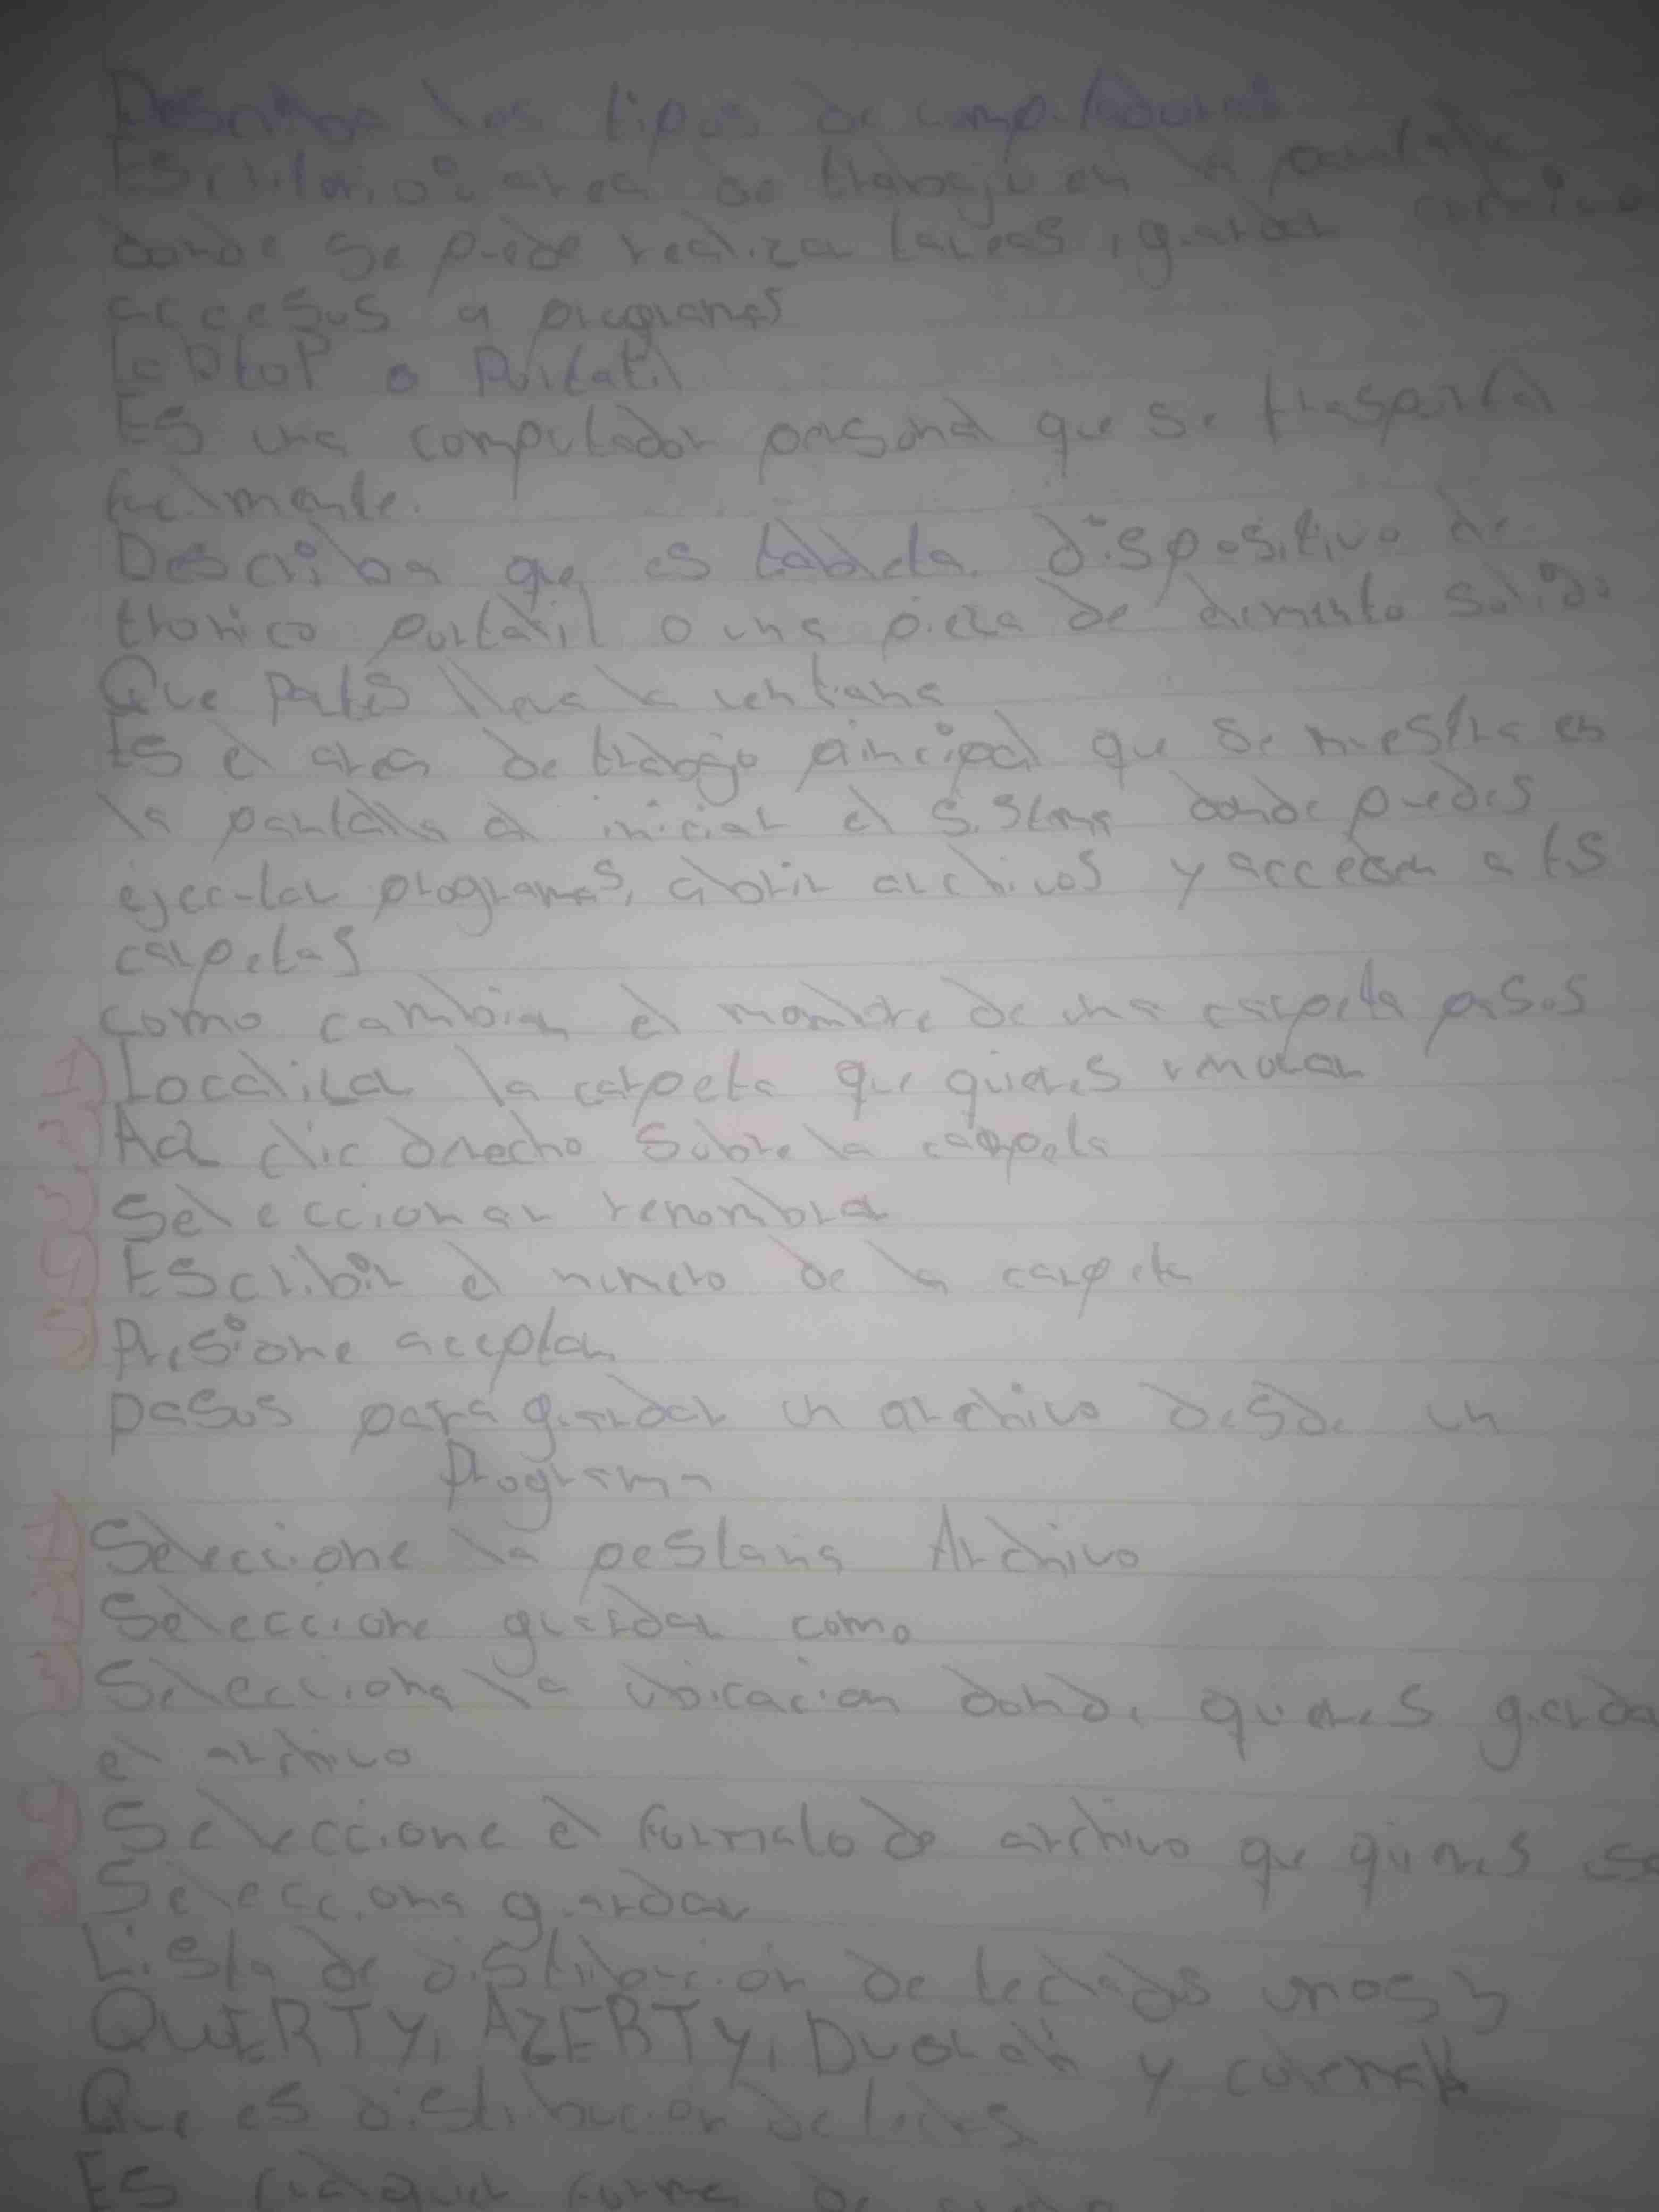 Describa los tipos de computadores
Escritorio: area de trabajo en la pantalla
donde se puede realizar tareas, guardar archivo
accesos a programas
LaptoP o Portatil
Es una computador personal que se trasporta
facilmente.
Describa que es tableta dispositivo de
tronico portatil o una pieza de alimento solido
Que Partes lleva la ventana
Es el area de trabajo principal que se muestra en
la pantalla al iniciar el sistema donde puedes
ejecutar programas, abrir archivos y acceder a ts
carpetas
como cambiar el mombre de una carpeta pasos
1) Localizar la carpeta que quieres
2) clic derecho sobre la carpeta
3) Seleccionar renombrar
4) Escribir el numero de la carpeta
5) Presione aceptar
Pasos para guardar un archivo desde un
Programa
1) Seleccione la pestana Archivo
2) Seleccione guardar como
3) Selecciona la ubicacion donde quieres guarda
el archivo
4) Seleccione el formato de archivo que quieres
Selecciona guardar
Lista de distribucion de teclados unos 3
QWERTY, AZERTY, Dvorak y colemak
Que es distribucion de teclas
Es cualquier forma de